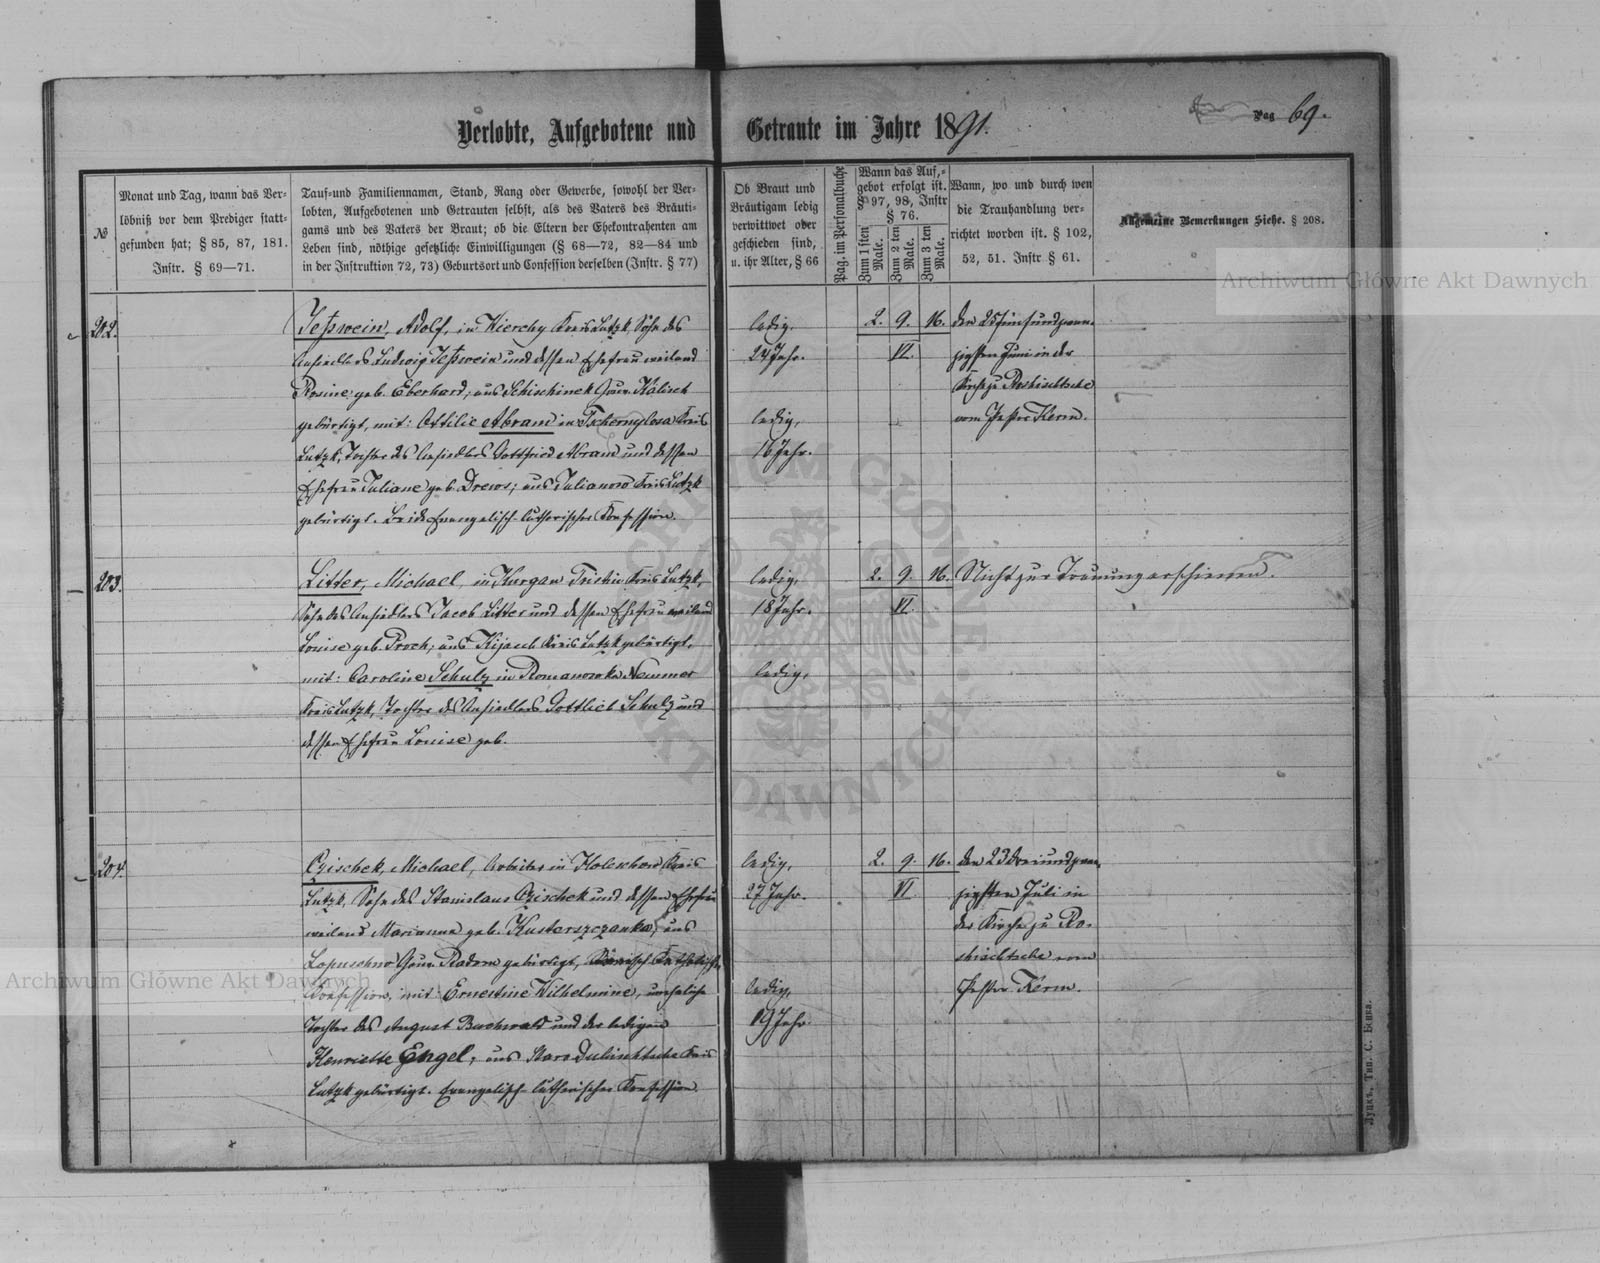 Verlobte, Aufgebotene und Getraute im Jahre 1891.
Pag 69.
№
Monat und Tag, wann das Ver-
löbniß vor dem Prediger statt-
gefunden hat; § 85, 87, 181.
Instr. § 69—71.
Tauf=und Familiennamen, Stand, Rang oder Gewerbe, sowohl der Ver-
lobten, Aufgebotenen und Getrauten selbst, als des Vaters des Bräuti-
gams und des Vaters der Braut; ob die Eltern der Ehekontrahenten am
Leben sind, nöthige gesetzliche Einwilligungen (§ 68—72, 82—84 und
in der Instruktion 72, 73) Geburtsort und Confession derselben (Instr. § 77)
Ob Braut und
Bräutigam ledig
verwittwet oder
geschieden sind,
u. ihr Alter, § 66
Pag. im Personalbuche
Wann das Auf-
gebot erfolgt ist.
§ 97, 98, Instr
§ 76.
Zum 1 sten Male.
Zum 2 ten Male.
Zum 3 ten Male.
Wann, wo und durch wen
die Trauhandlung ver-
richtet worden ist. § 102,
52, 51. Instr § 61.
Allgemeine Bemerkungen Siehe. § 208.
202.
Jeßwein, Adolf, in Wierchy Kreis Lutzk, Sohn des
Ansiedlers Ludwig Jeßwein und dessen Ehefrau weiland
Rosine geb. Eberhard; aus Schischinek Gouv. Kalisch
gebürtigt, mit: Ottilie Abram in Tschernylosa Kreis
Lutzk, Tochter des Ansiedlers Gottfried Abram und dessen
Ehefrau Juliane geb. Drews; aus Julianow Kreis Lutzk
gebürtigt. Beide Evangelisch-lutherischer Konfession.
ledig.
24 Jahr.
ledig,
16 Jahr.
2. 9. 16.
VI.
den 25 fünfundzwan-
zigsten Juni in der
Kirche zu Roschischtsche
vom Pastor Kerm.
203.
Litter, Michael, in Kurgan Tristin Kreis Lutzk,
Sohn des Ansiedlers Jacob Litter und dessen Ehefrau weiland
Louise geb. Proch; aus Kijasch Kreis Lutzk gebürtigt,
mit: Caroline Schulz in Romanowka Nemmer
Kreis Lutzk, Tochter des Ansiedlers Gottlieb Schulz und
dessen Ehefrau Louise geb.
ledig,
18 Jahr.
ledig,
2. 9. 16.
VI.
Nicht zur Trauung erschienen.
204.
Czischek, Michael, Arbeiter in Koleschow Kreis
Lutzk, Sohn des Stanislaus Czischek und dessen Ehefrau
weiland Marianna geb. Kusterszczanka; aus
Lopuschno Gouv. Radom gebürtigt, Römisch Katholischer
Konfession, mit: Ernestine Wilhelmine, uneheliche
Tochter des August Buchwald und der ledigen
Henriette Engel, aus Stara Kreis
Lutzk gebürtigt. Evangelisch-lutherischer Konfession.
ledig,
27 Jahr.
ledig,
19 Jahr.
2. 9. 16.
VI
den 23 dreiundzwan-
zigsten Juli in
der Kirche zu Ro-
schischtsche vom
Pastor Kerm.
Луцкъ, Тип. С. Бокка.
Archiwum Główne Akt Dawnych
Archiwum Główne Akt Dawnych